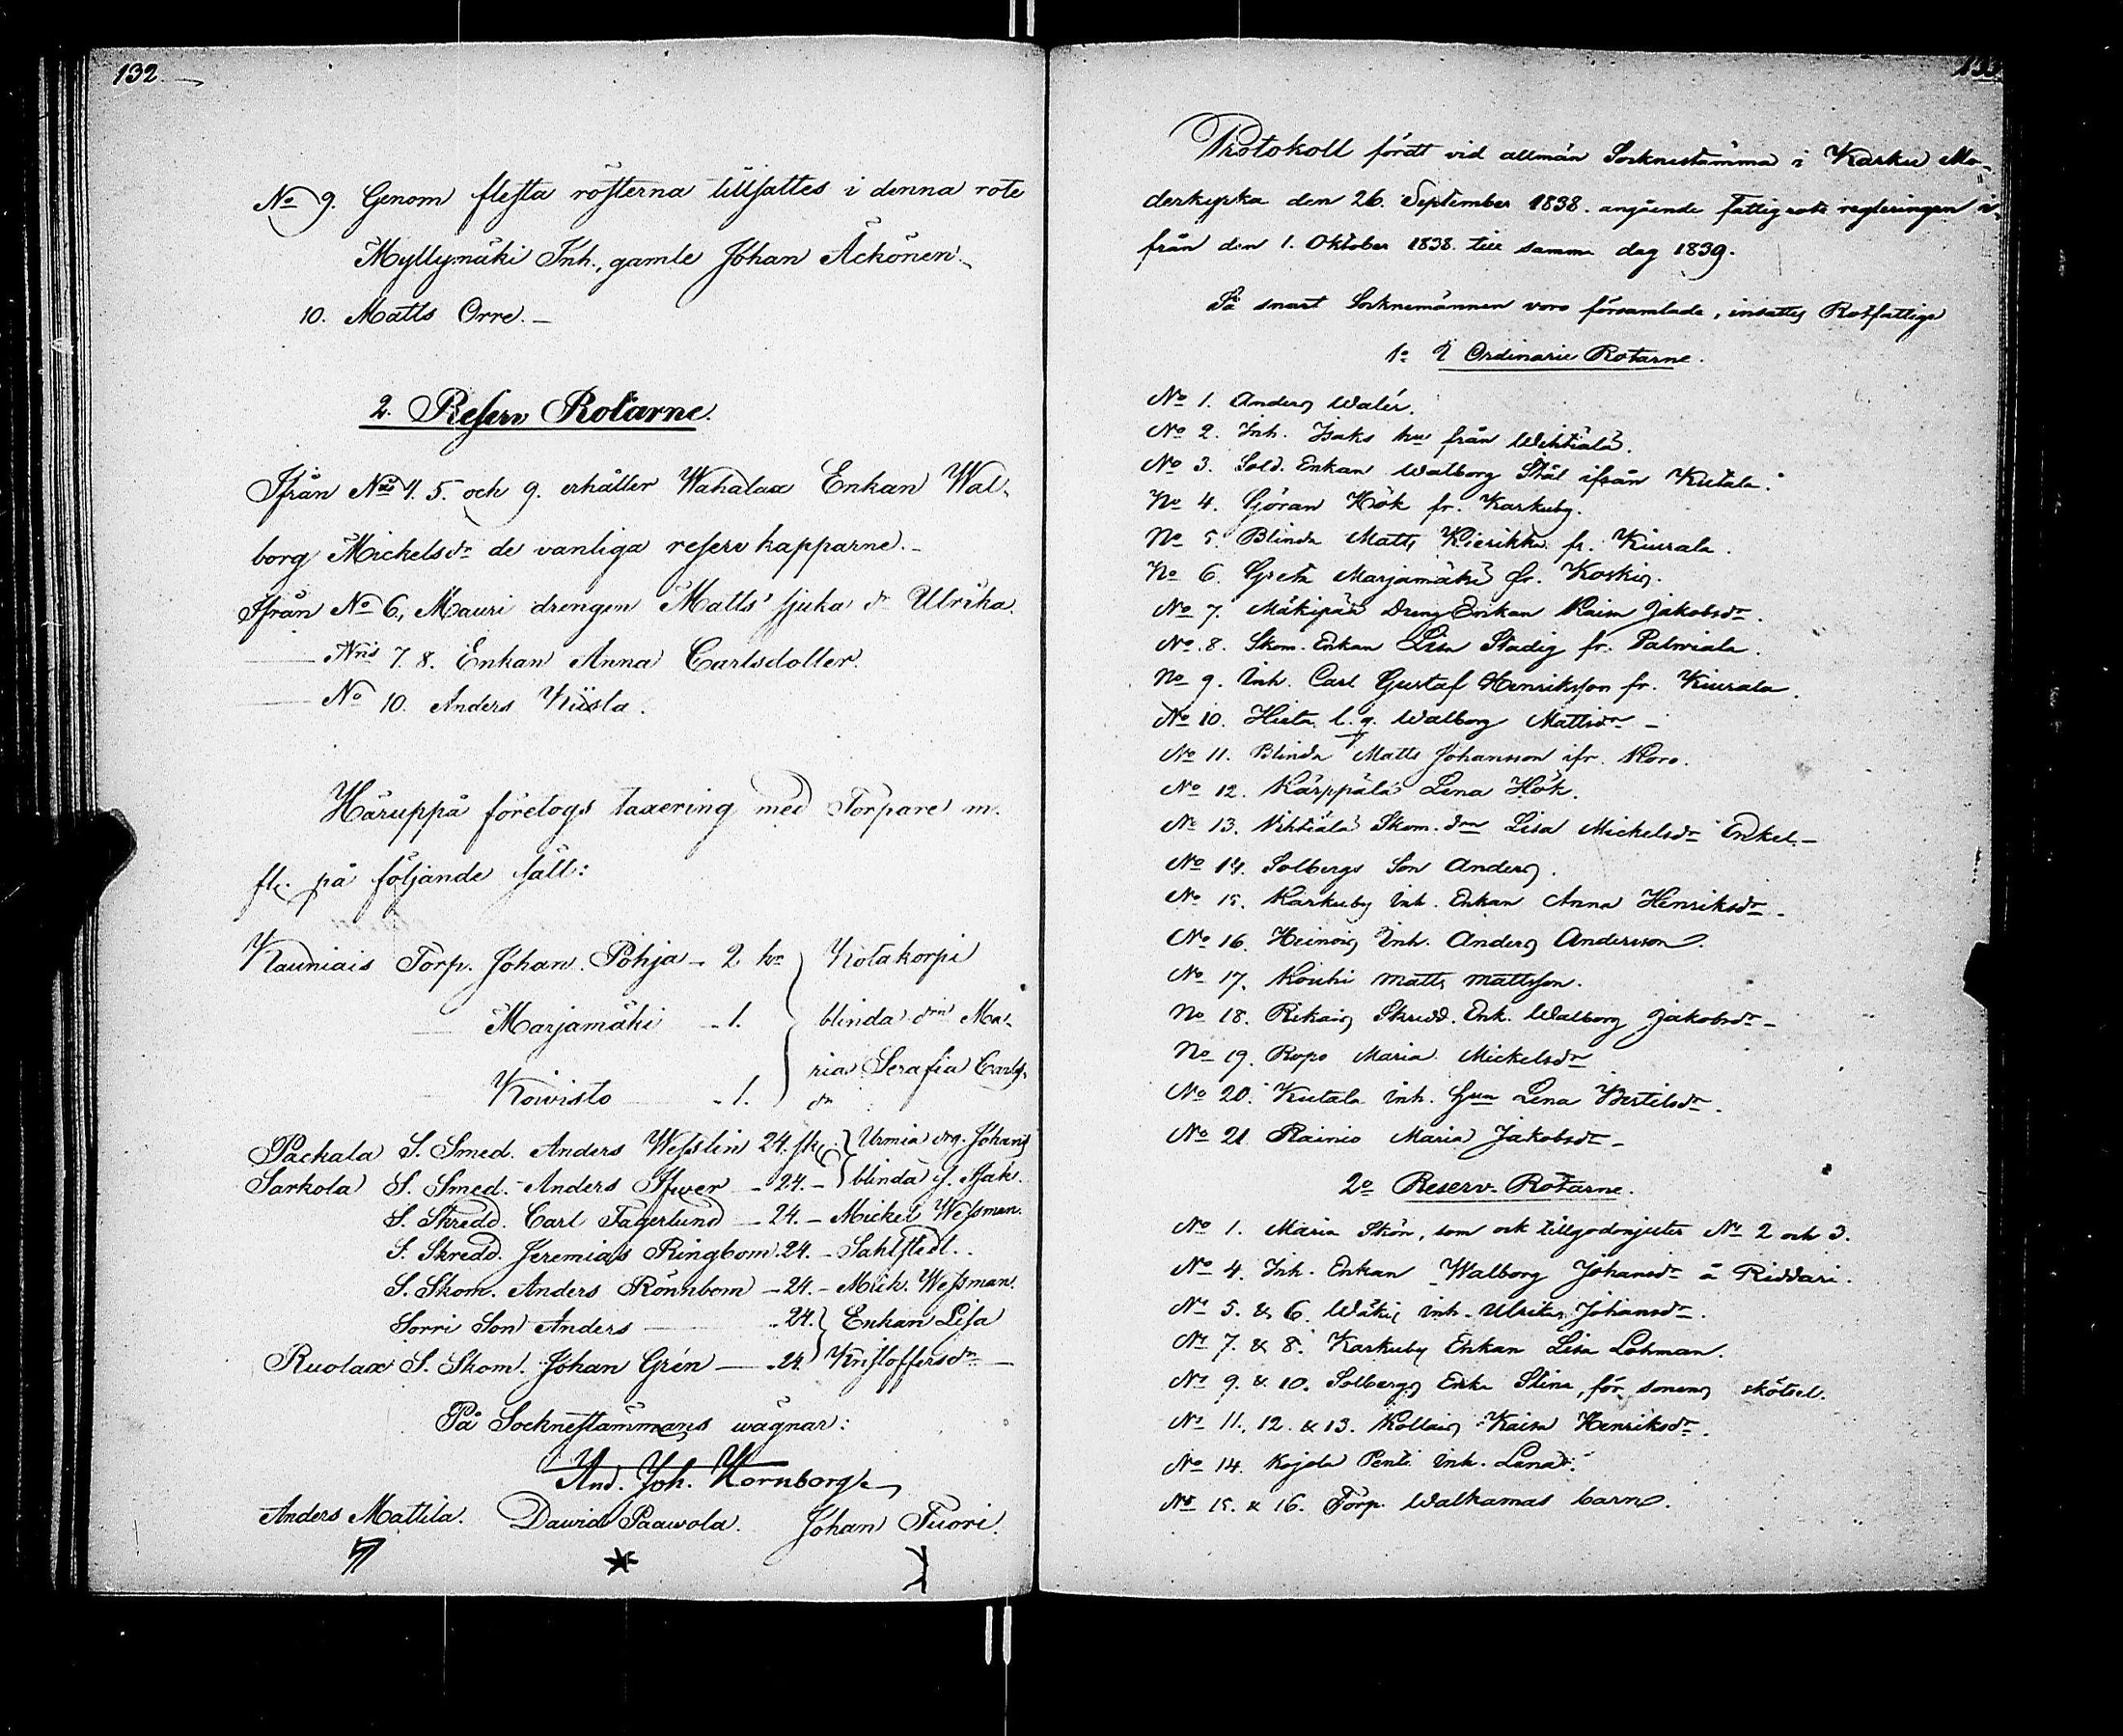 132.
No 9. Genom flesta rösterna tillsattes i denna rote
Myllymäki Inh., gamle Johan Äckönen.
10. Matts Orre.
2. Reserv Rotarne.
Ifrån Nris 4. 5. och 9. erhåller Wahalax Enkan Wal-
borg Michelsdr de vanliga reserv kapparne.
Ifrån No 6, Mauri drengen Matts' sjuka dr Ulrika.
Nris 7. 8. Enkan Anna Carlsdotter.
No 10. Anders Kiista.
Häruppå företogs taxering med Torpare m.
fl. på följande sätt:
Kauniais Torp. Johan Pohja - 2 kr Kotakorpi
Marjamäki - 1. blinda drn Ma-
Koivisto - 1. ria Serafia Carls-
dr
Packala S. Smed. Anders Wesslin 24. sk. Urmia drg. Johans
Sarkola S. Smed. Anders Ifwer - 24. - blinda g. Isak.
S. Skredd. Carl Fagerlund - 24. - Mickel Wessman.
S. Skredd. Jeremias Ringbom. 24. - Sahlstedt.
S. Skom. Anders Rönnbom - 24. - Mick. Wessman.
Sorri Son Anders - 24. Enkan Lisa
Ruolax S. Skom. Johan Grén - 24. Kristoffersdr
På Socknestämmans wägnar:
And. Joh. Hornborg
Anders Mattila. David Paawola. Johan Tuori.
Protokoll fördt vid allmän Socknestämma i Karku Mo-
derkyrka den 26. September 1838. angående fattigrote regleringen i-
från den 1. Oktober 1838. till samma dag 1839.
Så snart Socknemännen voro församlade, insattes Rotfattige
1o I Ordinarie Rotarne.
No 1. Anders Walér.
No 2. Inh. Isaks hu från Wihtiälä.
No 3. Sold. Enkan Walborg Stål ifrån Kutala.
No 4. Göran Hök fr. Karkuby.
No 5. Blinda Matts Kierikka fr. Kiurala.
No 6. Greta Marjamäki fr. Koskis.
No 7. Mäkipää Dreng Enkan Kaisa Jakobsdr.
No 8. Skom. Enkan Lisa Stadig fr. Palviala.
No 9. Inh. Carl Gustaf Henriksson fr. Kiurala.
No 10. Hieta l. g. Walborg Mattsdr -
No 11. Blinda Matts Johansson ifr. Koro.
No 12. Kärppälä Lena Hök.
No 13. Vihtiälä Skom. drn Lisa Michelsdr Enkel. -
No 14. Solbergs Son Anders.
No 15. Karkuby Inh. Enkan Anna Henriksdr -
No 16. Heinois Inh. Anders Andersson.
No 17. Kouhi Matts Mattsson.
No 18. Rikais Skredd. Enk. Walborg Jakobsdr -
No 19. Ropo Maria Mickelsdr
No 20. Kutala Inh. Hua Lena Bertilsdr.
No 21. Rainio Maria Jakobsdr -
2o Reserv-Rotarne.
No 1. Maria Skön, som ock tillgodonjuter Nr 2 och 3.
No 4. Inh. Enkan Walborg Johansdr å Riddari.
Nr 5. & 6. Wäkis inh. Ulrika Johansdr.
Nr 7. & 8. Karkuby Enkan Lisa Lohman.
Nr 9. & 10. Solbergs Enka Stina, för sonens skötsel.
Nr 11, 12. & 13. Kollais Kaisa Henriksdr.
No 14. Kojola Penti Inh. Lena.
Nr 15. & 16. Torp. Walkamas barn.